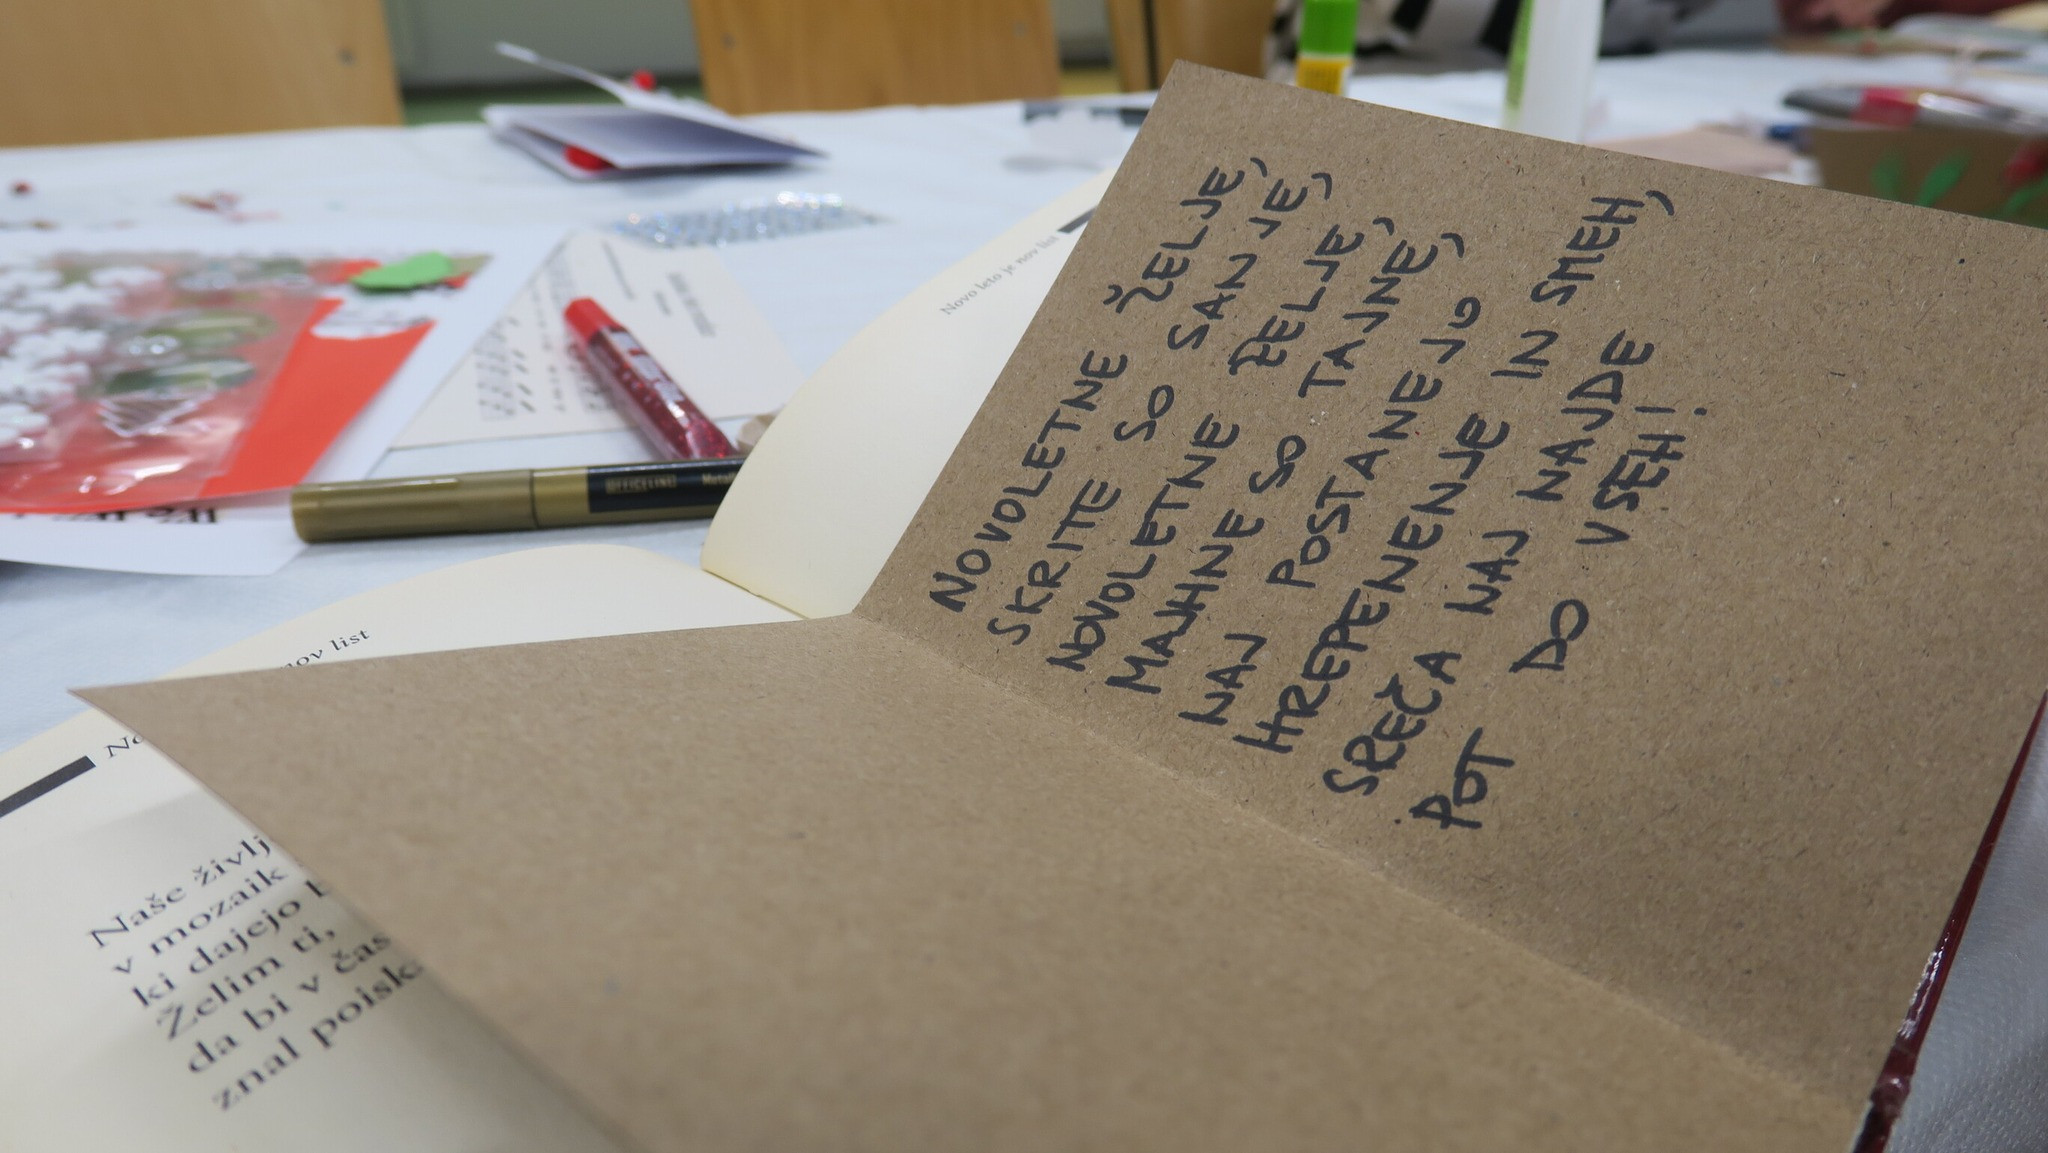 NOVOLETNE ŽELJE,
SKRITE SO SANJE,
NOVOLETNE ŽELJE,
MAJHNE SO TAJNE,
NAJ POSTANEJO
HREPENENJE IN SMEH,
SREČA NAJ NAJDE
POT DO VSEH!
Novo leto je nov list
nov list
No
Naše življ
v mozaik
ki dajejo
Želim ti,
da bi v čas
znal poisk
OFFICELINE Meta